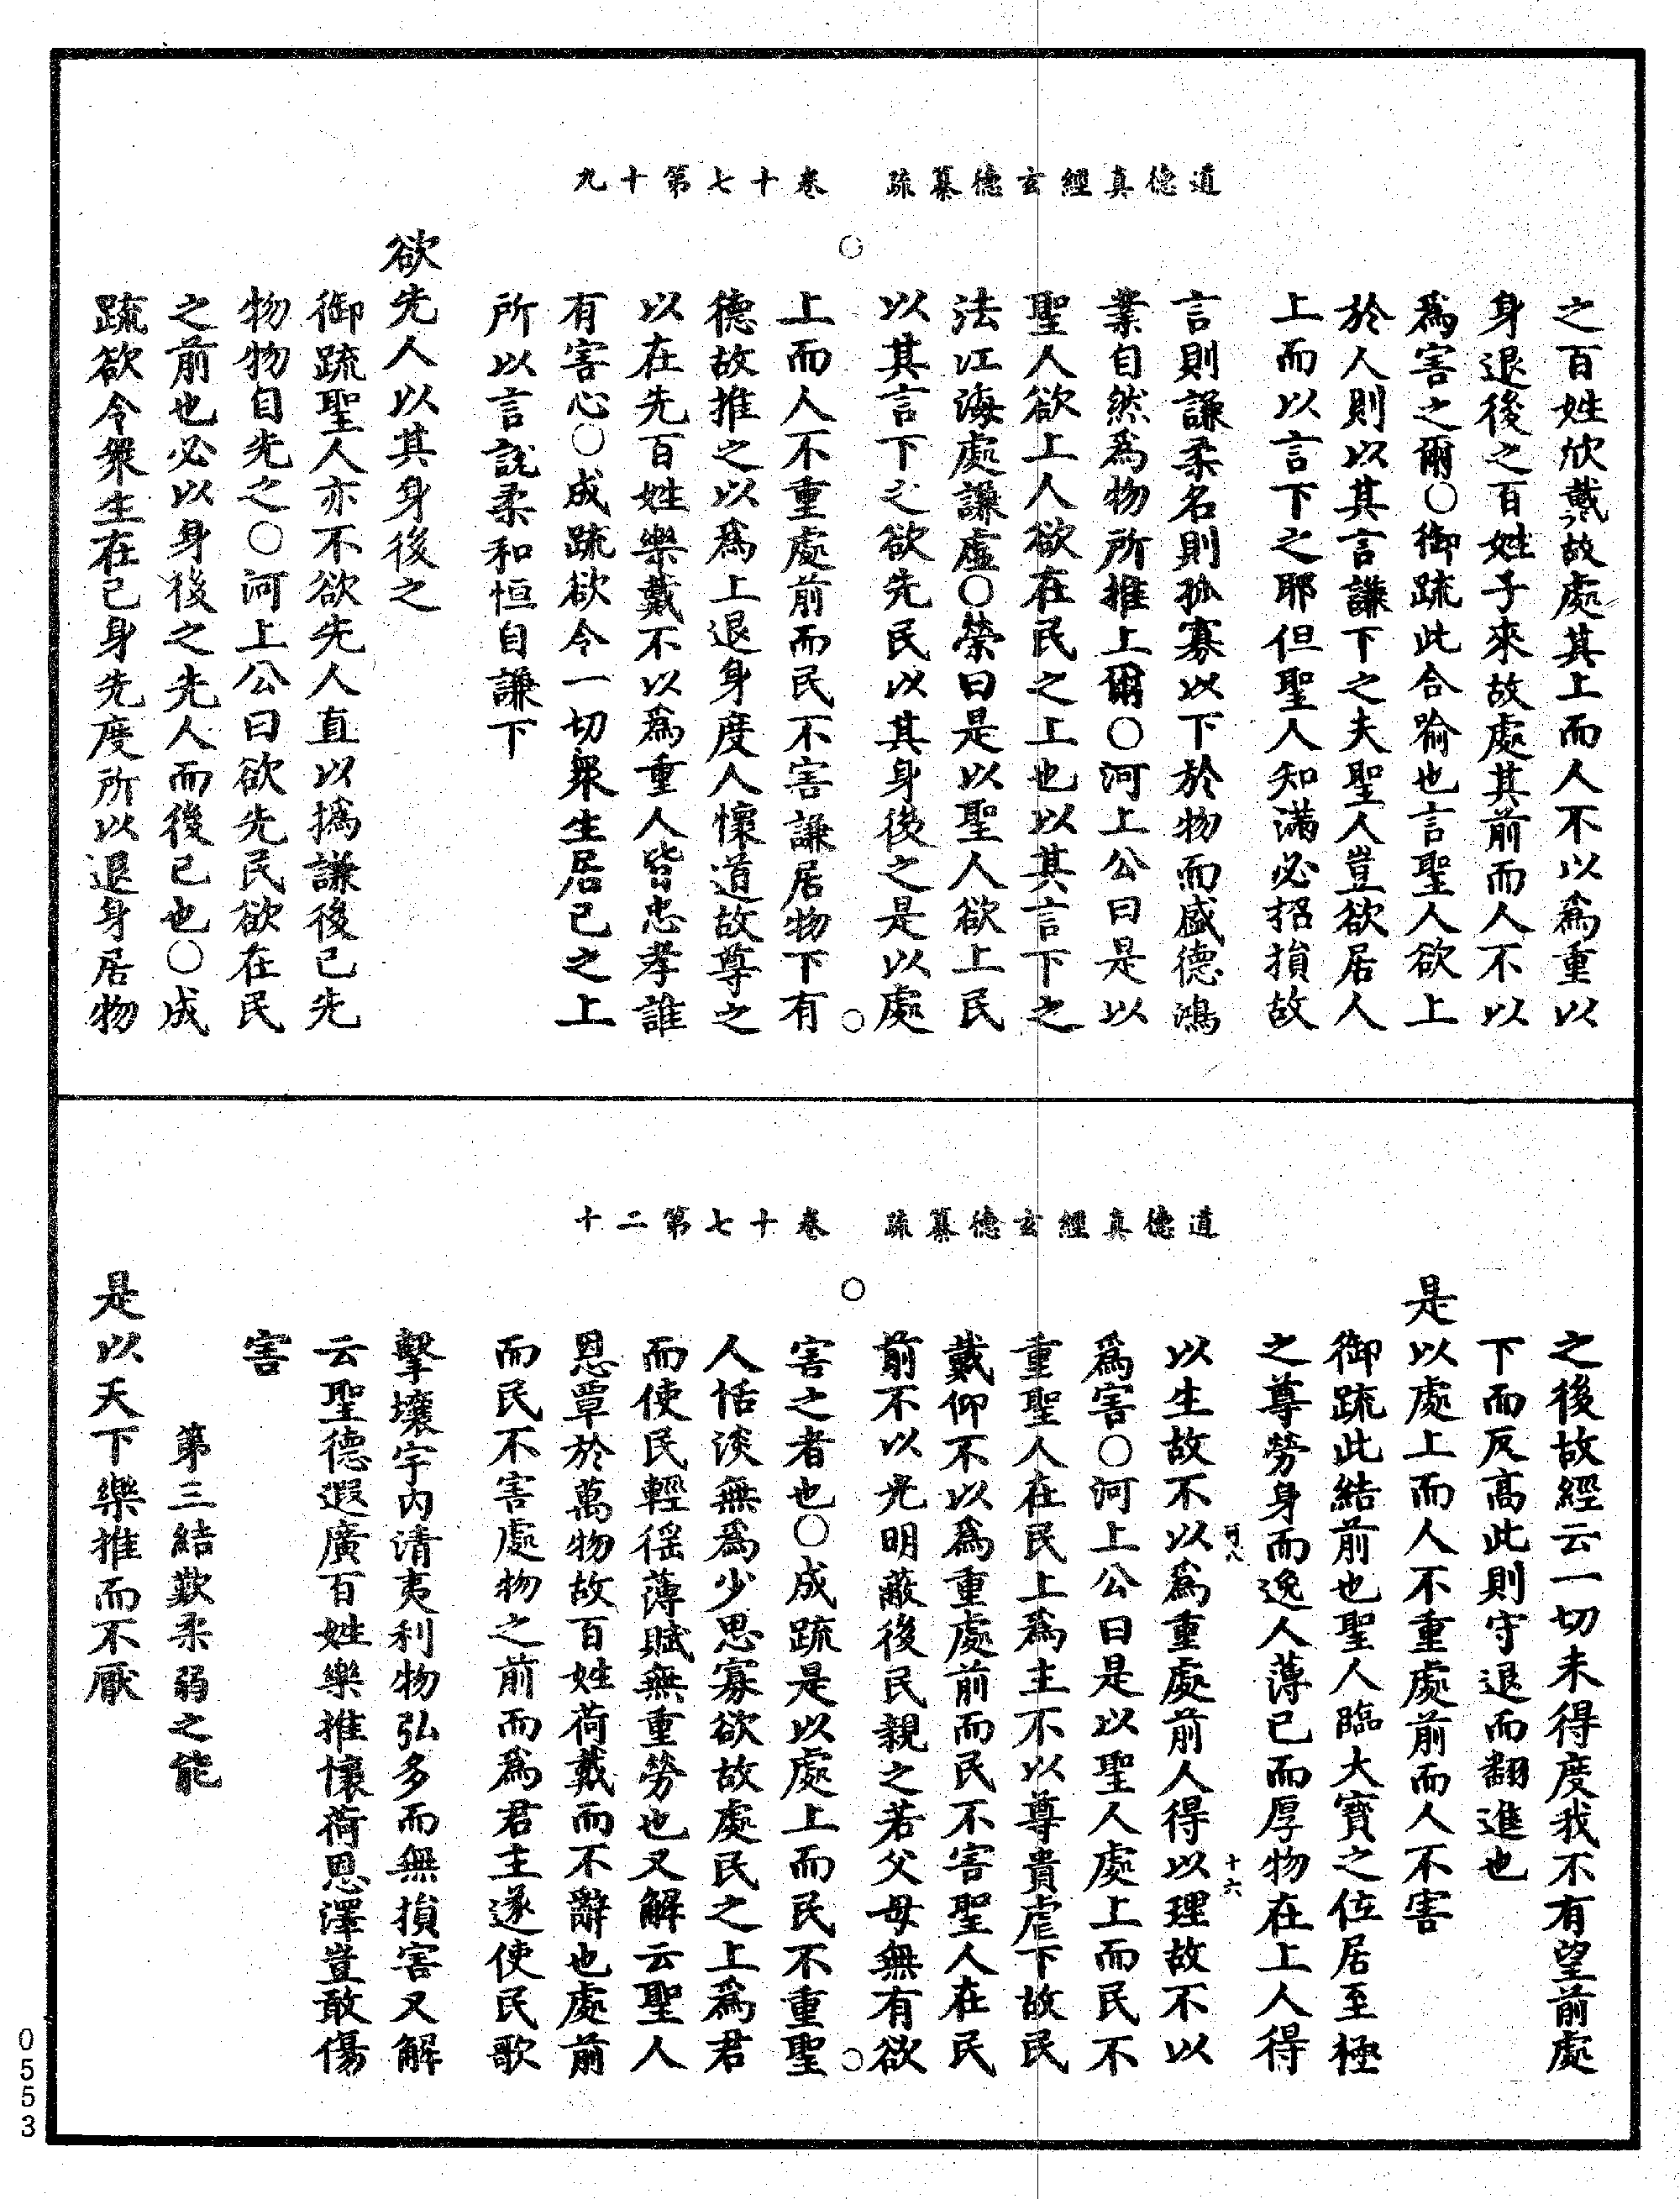 道德真經玄德纂疏　卷十七第十九
之百姓欣戴故處其上而人不以爲重以
身退後之百姓子來故處其前而人不以
爲害之爾○御疏此合喻也言聖人欲上
於人則以其言謙下之夫聖人豈欲居人
上而以言下之耶但聖人知滿必招損故
言則謙柔名則孤寡以下於物而盛德鴻
業自然爲物所推上爾○河上公曰是以
聖人欲上人欲在民之上也以其言下之
法江海處謙虛○榮曰是以聖人欲上民
以其言下之欲先民以其身後之是以處
上而人不重處前而民不害謙居物下有
德故推之以爲上退身度人懷道故尊之
以在先百姓樂戴不以爲重人皆忠孝誰
有害心○成疏欲令一切衆生居己之上
所以言說柔和恒自謙下
欲先人以其身後之
御疏聖人亦不欲先人直以撝謙後己先
物物自先之○河上公曰欲先民欲在民
之前也必以身後之先人而後已也○成
疏欲令衆生在己身先度所以退身居物
道德真經玄德纂疏　卷十七第二十
之後故經云一切未得度我不有望前處
下而反高此則守退而翻進也
是以處上而人不重處前而人不害
御疏此結前也聖人臨大寶之位居至極
之尊勞身而逸人薄己而厚物在上人得
以生故不以爲重處前人得以理故不以
十六
爲害○河上公曰是以聖人處上而民不
重聖人在民上爲主不以尊貴虐下故民
戴仰不以爲重處前而民不害聖人在民
前不以光明蔽後民親之若父母無有欲
害之者也○成疏是以處上而民不重聖
人恬淡無爲少思寡欲故處民之上爲君
而使民輕徭薄賦無重勞也又解云聖人
恩覃於萬物故百姓荷戴而不辭也處前
而民不害處物之前而爲君主遂使民歌
擊壤宇內清夷利物弘多而無損害又解
云聖德遐廣百姓樂推懷荷恩澤豈敢傷
害
第三結歎柔弱之能
是以天下樂推而不厭
0553